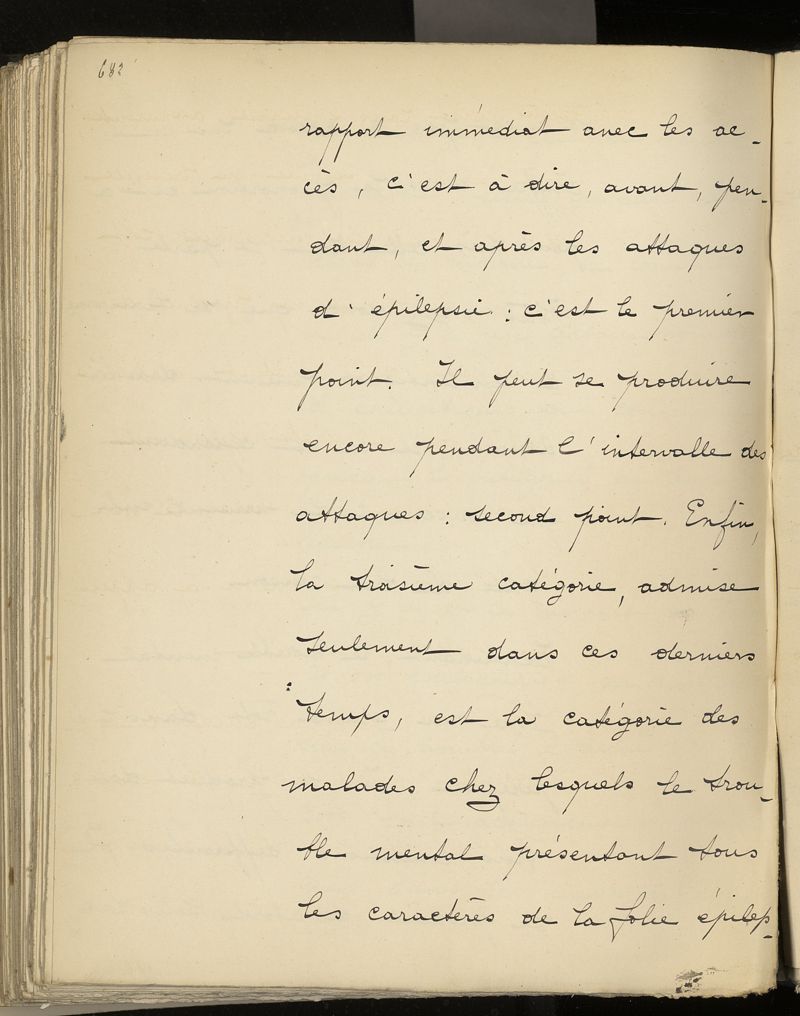 682
rapport immédiat avec les ac-
cès, c'est à dire, avant, pen-
dant, et après les attaques
d'épilepsie : c'est le premier
point. Il peut se produire
encore pendant l'intervalle des
attaques : second point. Enfin,
la troisième catégorie, admise
seulement dans ces derniers
temps, est la catégorie des
malades chez lesquels le trou-
ble mental présentant tous
les caractères de la folie épilep-